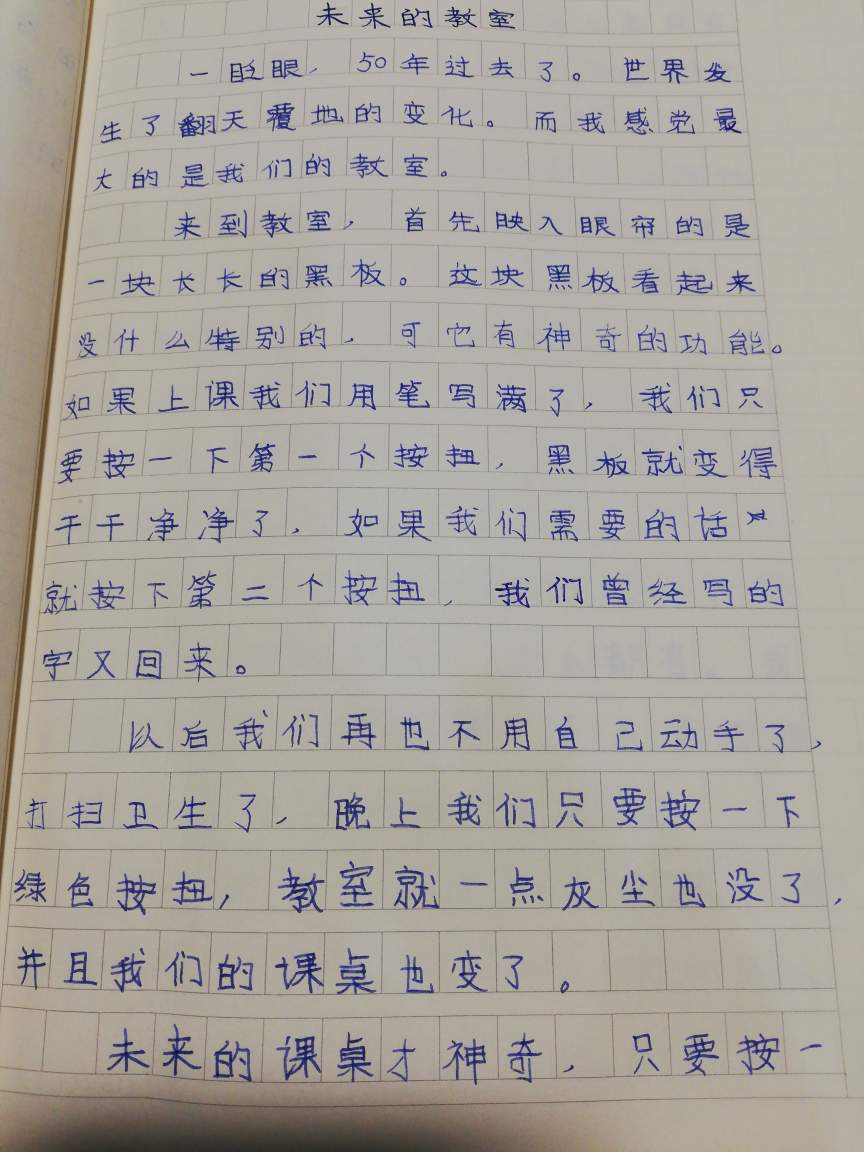 未来的教室
一眨眼，50年过去了。世界发
生了翻天覆地的变化。而我感觉最
大的是我们的教室。
来到教室，首先映入眼帘的是
一块长长的黑板。这块黑板看起来
没什么特别的，可它有神奇的功能。
如果上课我们用笔写满了，我们只
要按一下第一个按扭，黑板就变得
干干净净了，如果我们需要的话
就按下第二个按扭，我们曾经写的
字又回来。
以后我们再也不用自己动手了，
打扫卫生了，晚上我们只要按一下
绿色按扭，教室就一点灰尘也没了，
并且我们的课桌也变了。
未来的课桌才神奇，只要按一